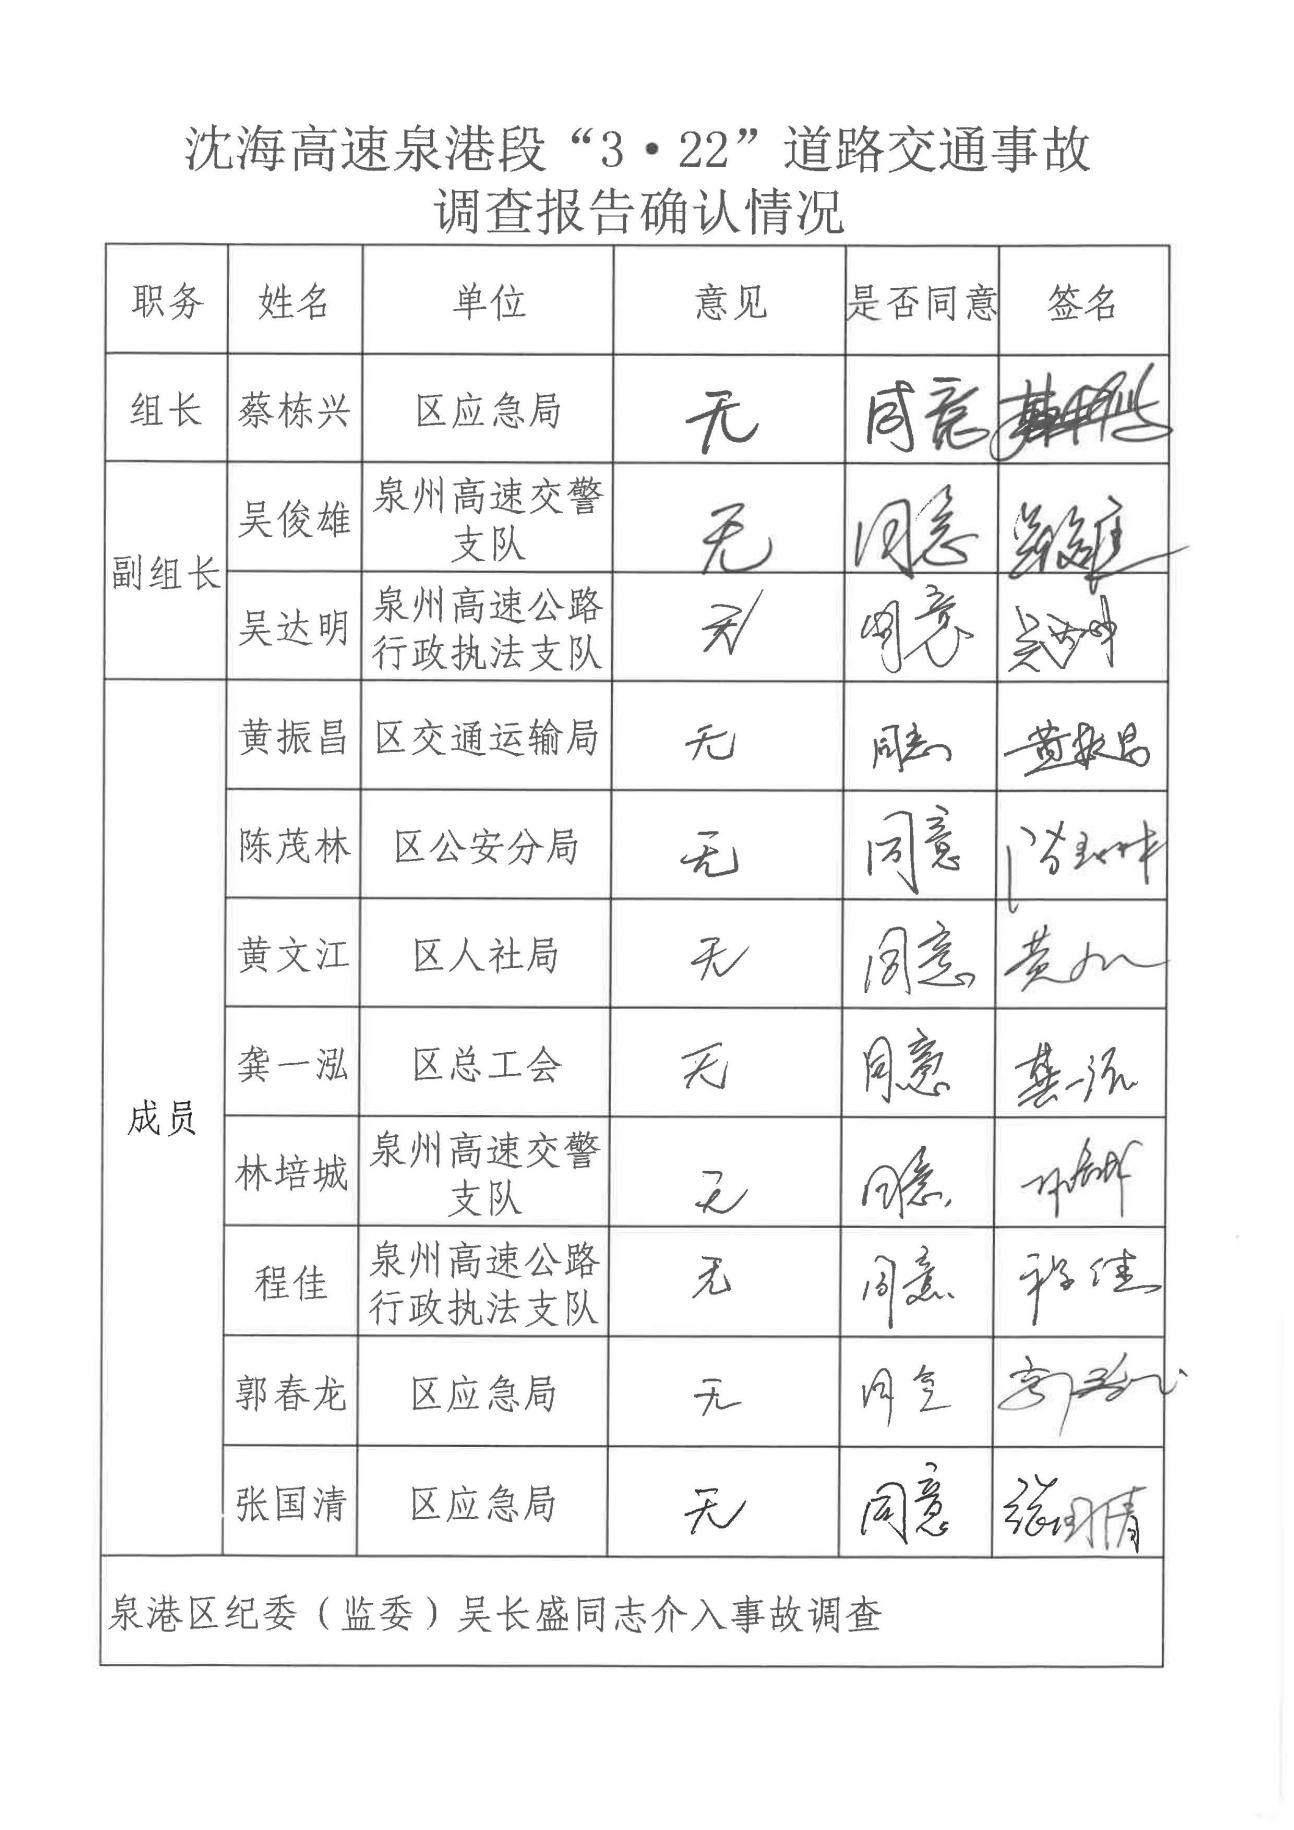 沈海高速泉港段“3·22”道路交通事故
调查报告确认情况
职务 姓名 单位 意见 是否同意 签名
组长 蔡栋兴 区应急局 无 同意
副组长
吴俊雄 泉州高速交警
支队 无 同意
吴达明 泉州高速公路
行政执法支队 无 同意
成员
黄振昌 区交通运输局 无 同意 黄振昌
陈茂林 区公安分局 无 同意
黄文江 区人社局 无 同意
龚一泓 区总工会 无 同意 龚一泓
林培城 泉州高速交警
支队 无 同意
程佳 泉州高速公路
行政执法支队 无 同意 程佳
郭春龙 区应急局 无 同意
张国清 区应急局 无 同意 张国清
泉港区纪委（监委）吴长盛同志介入事故调查